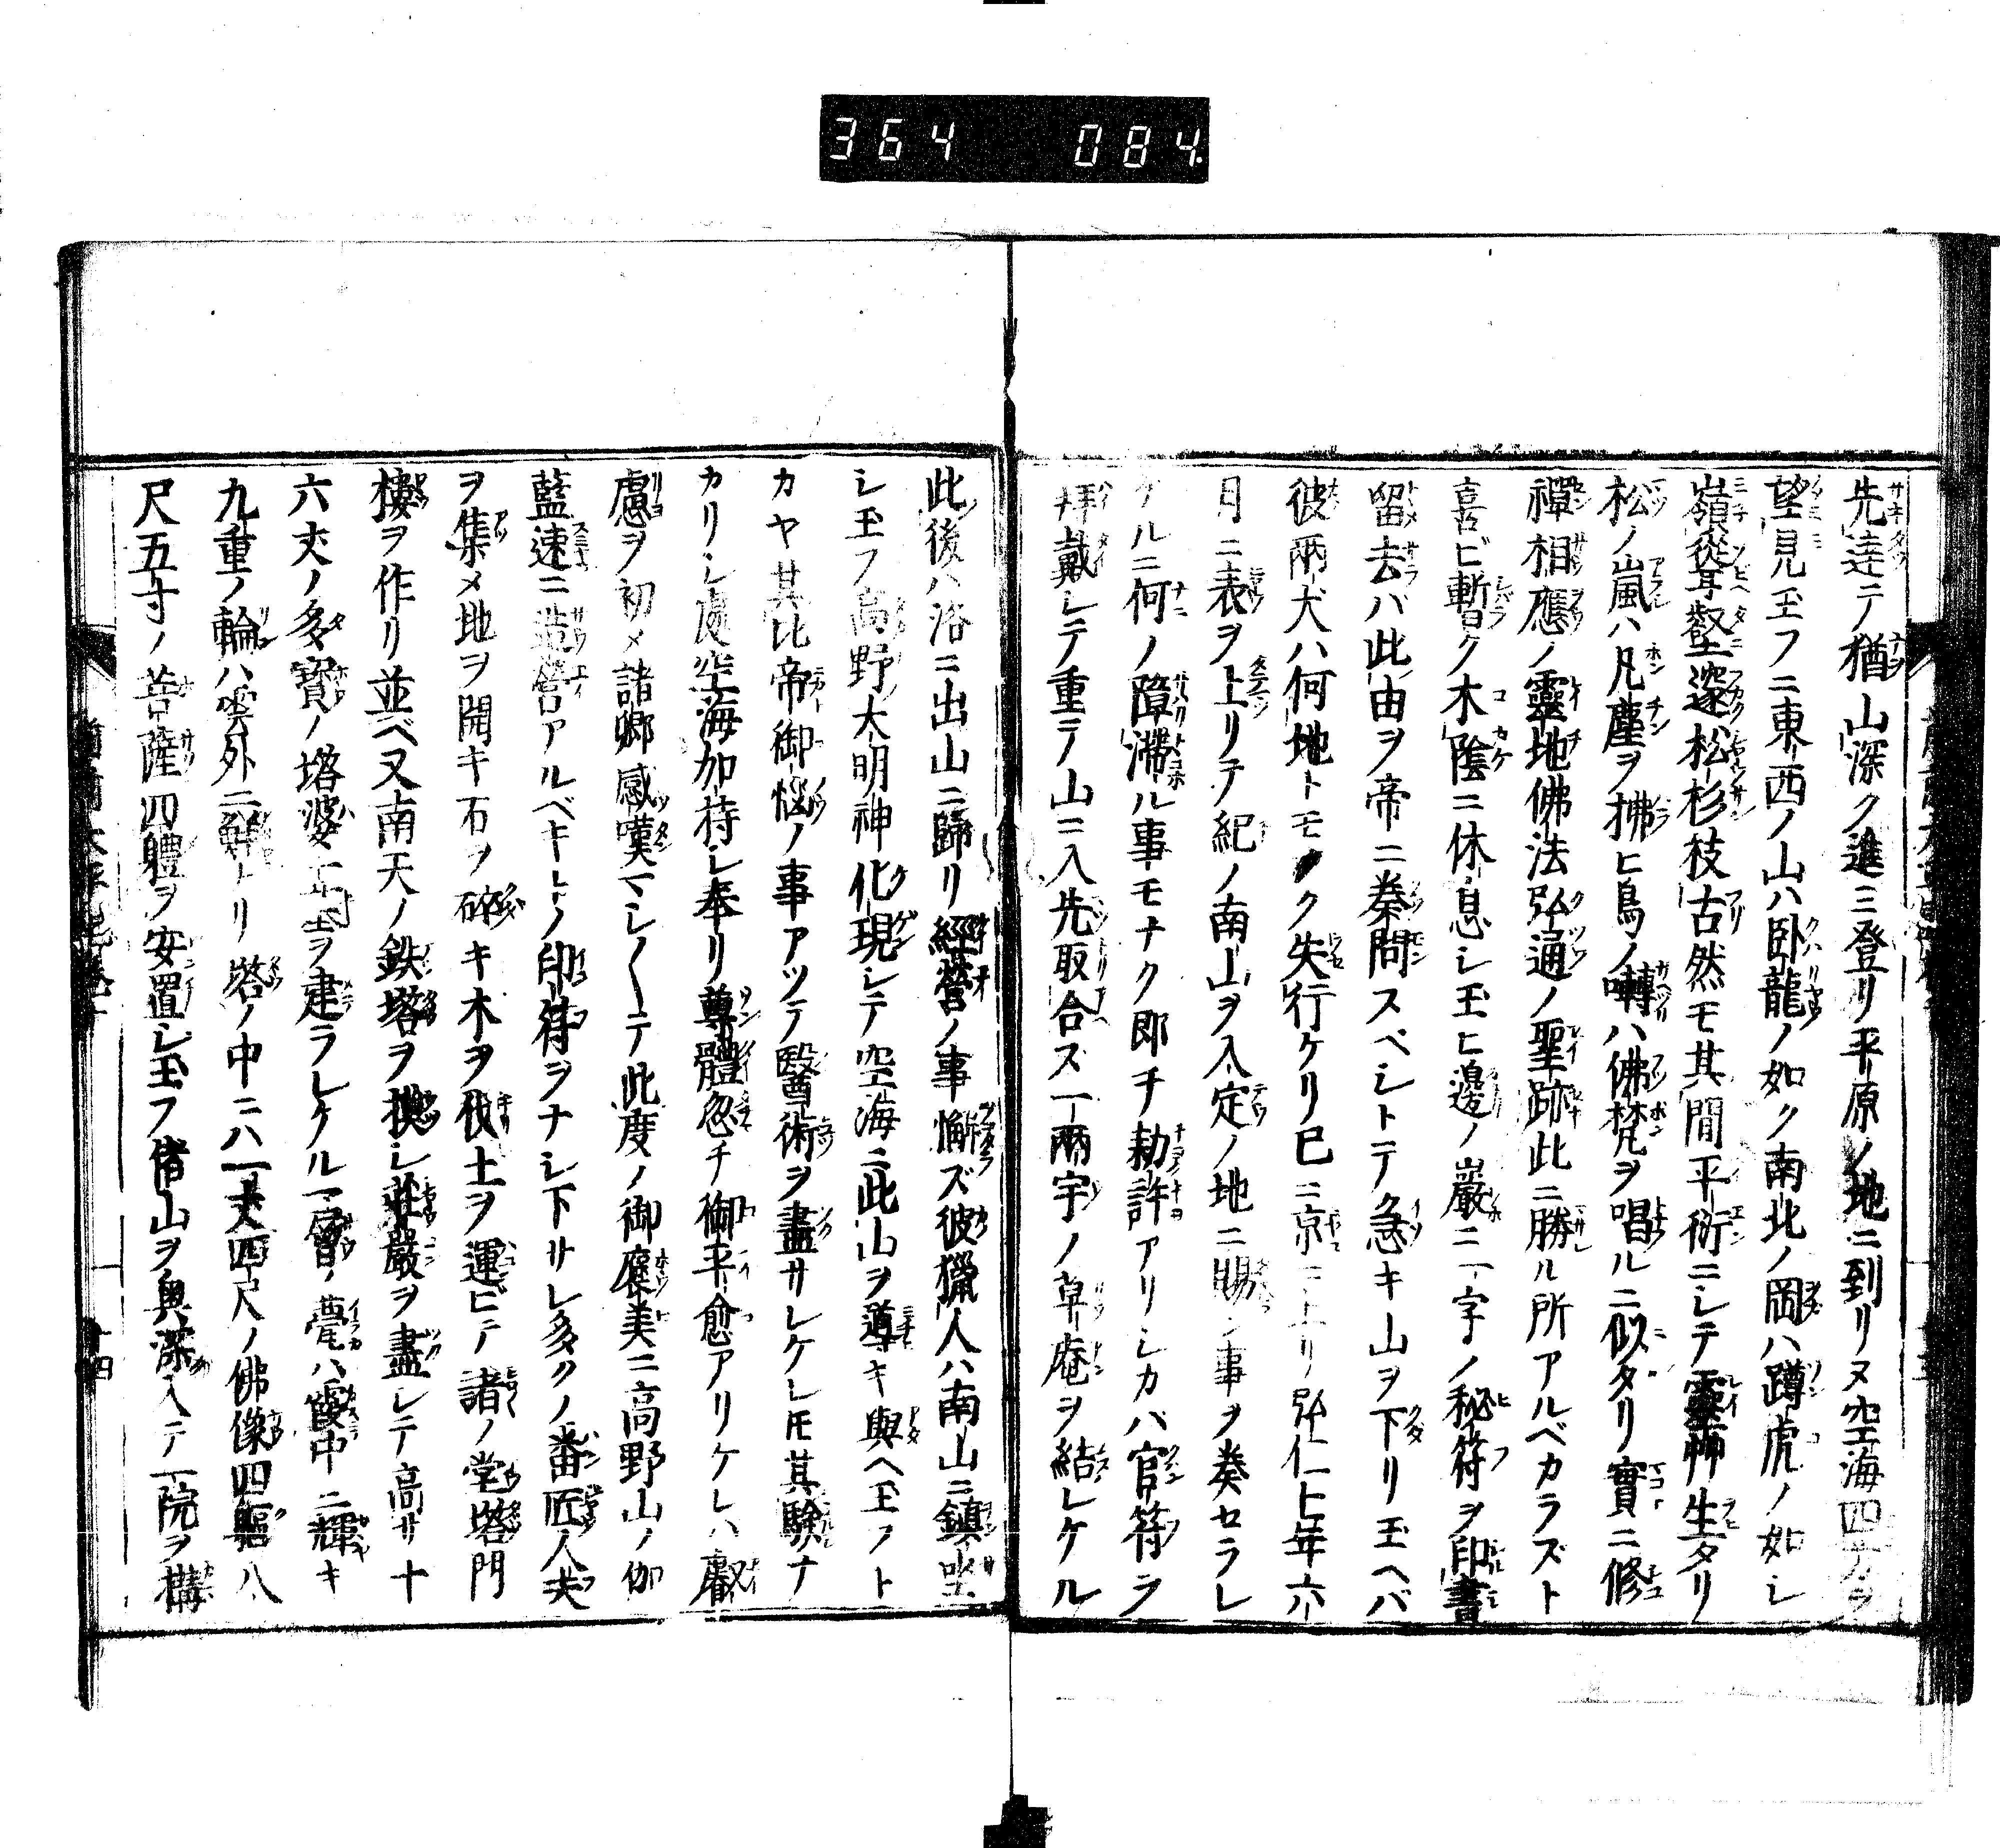 364 084
先達テ猶山深ク進ミ登リ平原ノ地ニ到リヌ空海四方ヲ
望見玉フニ東西ノ山ハ臥龍ノ如ク南北ノ岡ハ蹲虎ノ如シ
嶺聳壑邃松杉枝古然モ其間平衍ニシテ靈艸生タリ
松ノ嵐ハ凡塵ヲ拂ヒ鳥ノ囀ハ佛梵ヲ唱ルニ似タリ實ニ修
禪相應ノ靈地佛法弘通ノ聖跡此ニ勝ル所アルベカラズト
喜ビ暫ク木陰ニ休息シ玉ヒ邊ノ巖ニ一字ノ秘符ヲ印書
留去バ此由ヲ帝ニ奏問スベシトテ急キ山ヲ下リ玉ヘバ
彼兩犬ハ何地トモナク失行ケリ已ニ京ニ上リ弘仁七年六
月ニ表ヲ上リテ紀ノ南山ヲ入定ノ地ニ賜ン事ヲ奏セラレ
ケルニ何ノ障滯ル事モナク郎チ勅許アリシカバ官符ヲ
拜戴シテ重テ山ニ入先取合ス一兩宇ノ草庵ヲ結レケル
此後ハ洛ニ出山ニ歸リ經營ノ事懈ズ彼獵人ハ南山ニ鎮坐
シ玉フ高野大明神化現シテ空海ニ此山ヲ導キ與ヘ玉フト
カヤ其比帝御惱ノ事アツテ醫術ヲ盡サレケレ𪜈其驗ナ
カリシ處空海加持シ奉リ尊體忽チ御平愈アリケレハ叡
慮ヲ初メ諸卿感嘆マシ〱テ此度ノ御褒美ニ高野山ノ伽
藍速ニ造營アルベキトノ印符ヲナシ下サレ多クノ番匠人夫
ヲ集メ地ヲ開キ石ヲ碎キ木ヲ伐土ヲ運ビテ諸ノ堂塔門
樓ヲ作リ並ベ又南天ノ鉄塔ヲ摸シ莊嚴ヲ盡シテ高サ十
六丈ノ多寳ノ塔婆一基ヲ建ラレケル一層ノ甍ハ霞中ニ輝キ
九重ノ輪ハ雲外ニ鮮ナリ塔ノ中ニハ一丈四尺ノ佛像四軀八
尺五寸ノ菩薩四體ヲ安置シ玉フ偖山ヲ奥深入テ一院ヲ構